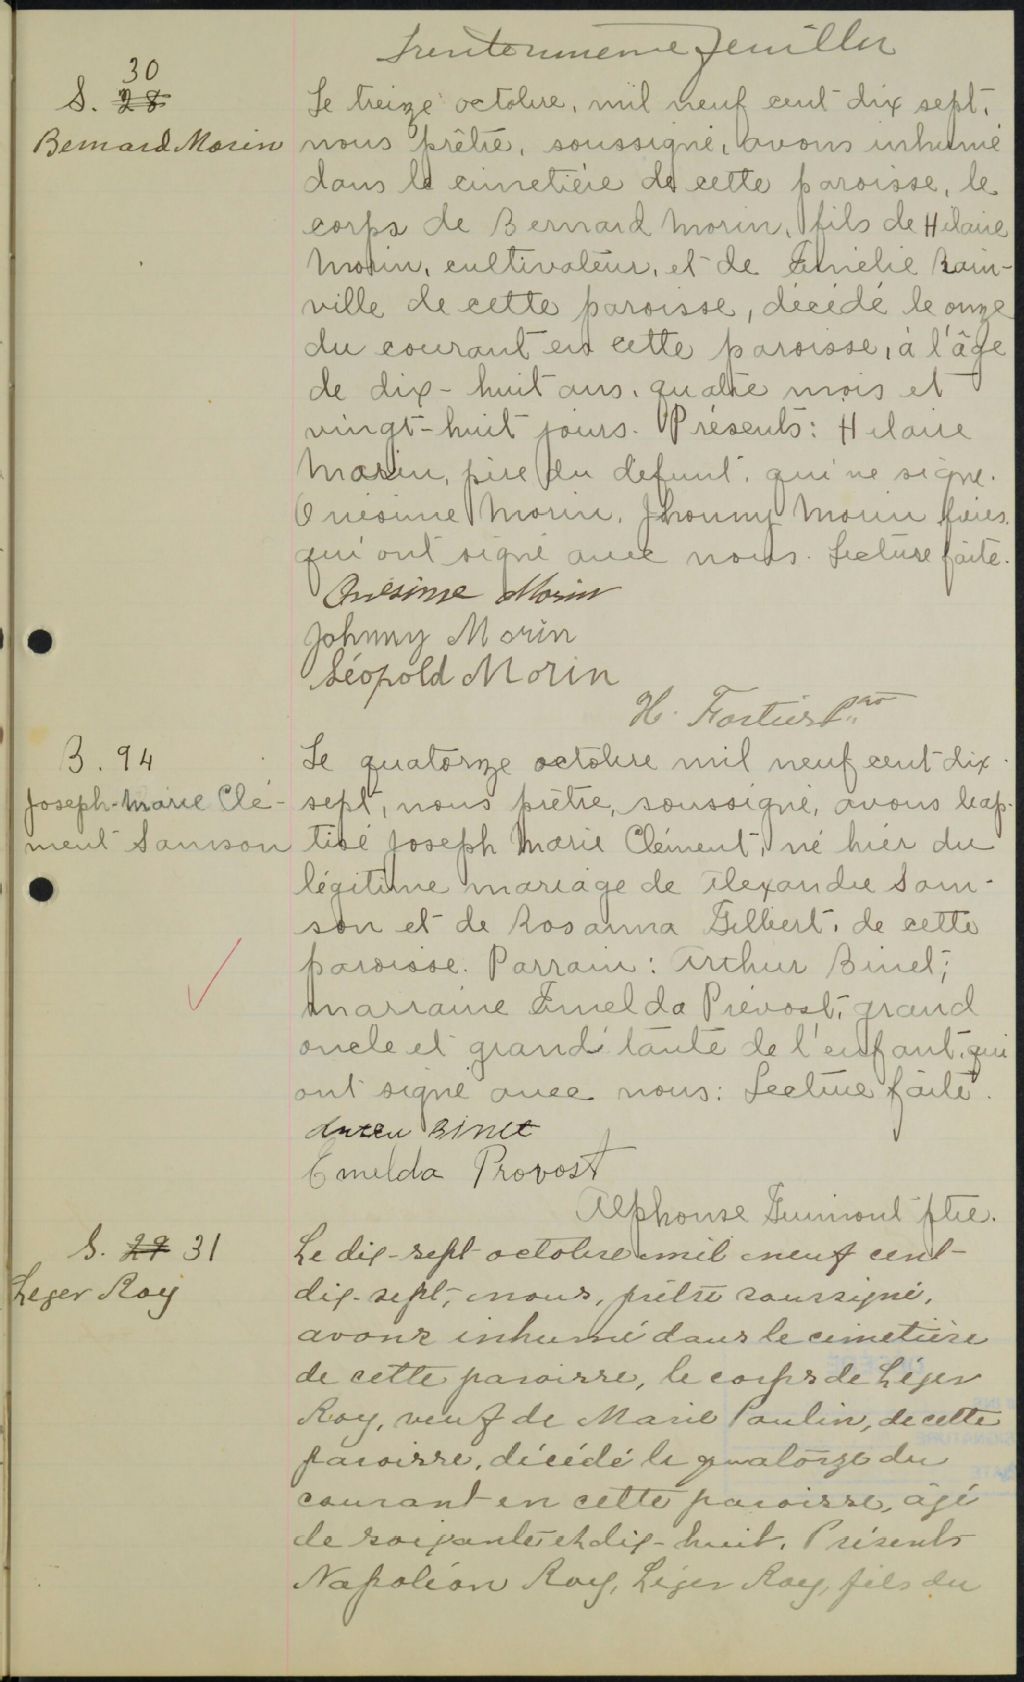 Trente unième feuillet
30
S. 28
Bernard Morin
Le treize octobre, mil neuf cent dix sept,
nous prêtre, soussigné, avons inhumé
dans le cimetière de cette paroisse, le
corps de Bernard Morin, fils de Hilaire
Morin, cultivateur, et de Emélie Rain-
ville de cette paroisse, décédé le onze
du courant en cette paroisse, à l'âge
de dix-huit ans, quatre mois et
vingt-huit jours. Présents: Hilaire
Morin, père du défunt, qui ne signe.
Onésime Morin, Jhonny Morin frères,
qui ont signé avec nous. Lecture faite.
Onésime Morin
Johnny Morin
Léopold Morin
H. Fortier Ptre
B. 94
Joseph-Marie Clé-
ment Samson
Le quatorze octobre mil neuf cent dix
sept, nous prêtre, soussigné, avons bap-
tisé Joseph Marie Clément, né hier du
légitime mariage de Alexandre Sam-
son et de Rosanna Gilbert, de cette
paroisse. Parrain: Arthur Binet;
marraine Emelda Prévost, grand
oncle et grand'tante de l'enfant, qui
ont signé avec nous: Lecture faite.
Binet
Emelda Provost
Alphonse Dumont ptre.
S. 29 31
Leger Roy
Le dix-sept octobre mil neuf cent
dix-sept, nous, prêtre soussigné,
avons inhumé dans le cimetière
de cette paroisse, le corps de Léger
Roy, veuf de Marie Poulin, de cette
paroisse, décédé le quatorze du
courant en cette paroisse, âgé
de soixante et dix-huit. Présents
Napoléon Roy, Léger Roy, fils du